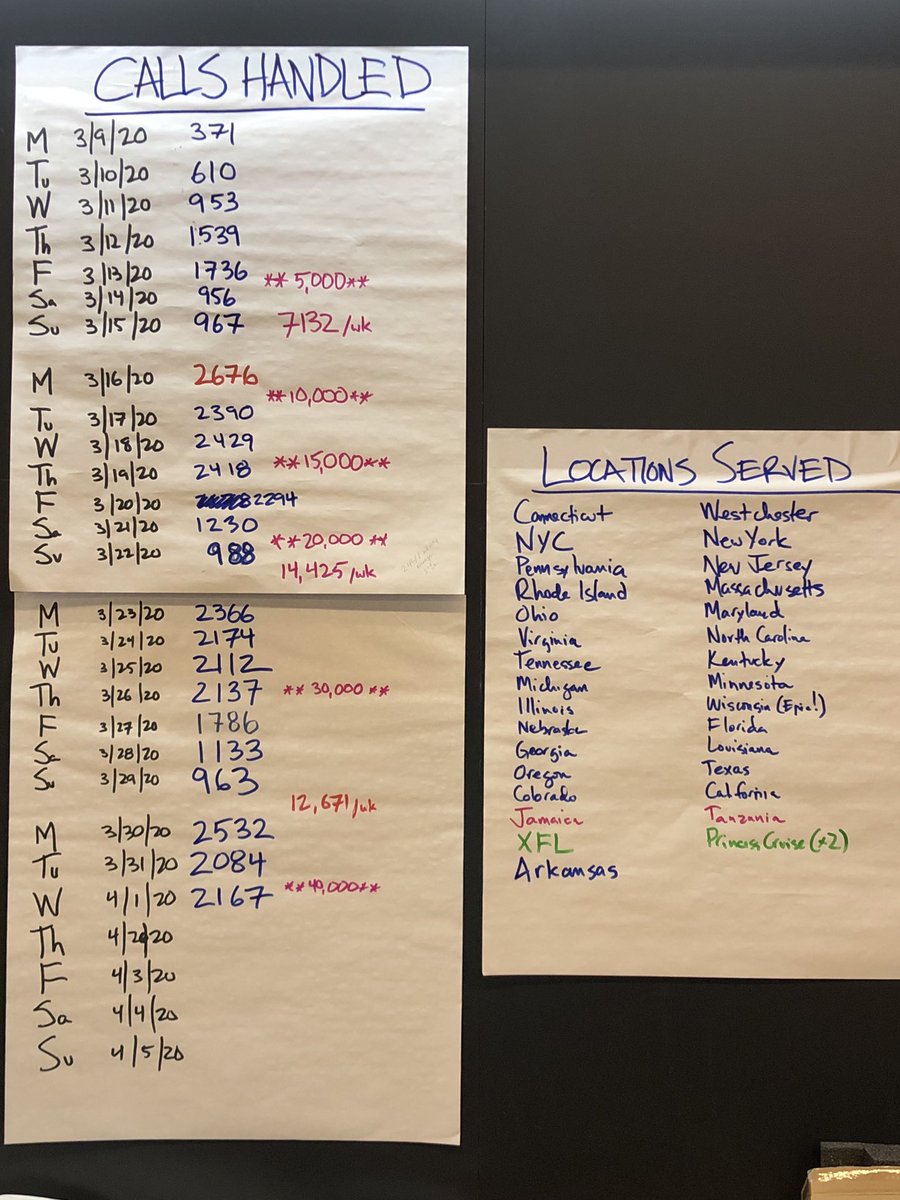 CALLS HANDLED
M 3/9/20 371
Tu 3/10/20 610
W 3/11/20 953
Th 3/12/20 1539
F 3/13/20 1736 ** 5,000**
Sa 3/14/20 956
Su 3/15/20 967 7132/wk
M 3/16/20 2676
**10,000**
Tu 3/17/20 2390
W 3/18/20 2429
Th 3/19/20 2418 **15,000**
F 3/20/20 2294
Sa 3/21/20 1230
Su 3/22/20 988 **20,000 **
14,425/wk
M 3/23/20 2366
Tu 3/24/20 2174
W 3/25/20 2112
Th 3/26/20 2137 ** 30,000 **
F 3/27/20 1786
Sa 3/28/20 1133
Su 3/29/20 963
12,671/wk
M 3/30/20 2532
Tu 3/31/20 2084
W 4/1/20 2167 **40,000**
Th 4/2/20
F 4/3/20
Sa 4/4/20
Su 4/5/20
LOCATIONS SERVED
Connecticut Westchester
NYC New York
Pennsylvania New Jersey
Rhode Island Massachusetts
Ohio Maryland
Virginia North Carolina
Tennessee Kentucky
Michigan Minnesota
Illinois Wisconsin (Epic!)
Nebraska Florida
Georgia Louisiana
Oregon Texas
Colorado California
Jamaica Tanzania
XFL Princess Cruise (x2)
Arkansas